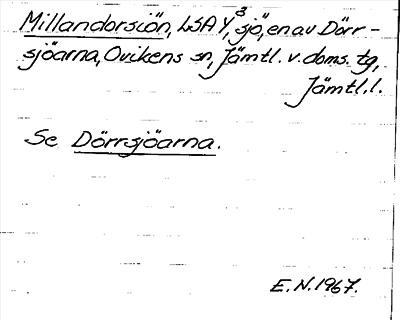 Millandorsiön, LSA Y³, sjö, en av Dörr-
sjöarna, Ovikens sn, Jämtl. v. doms. tg,
Jämtl. l.
Se Dörrsjöarna.
E.N. 1967.